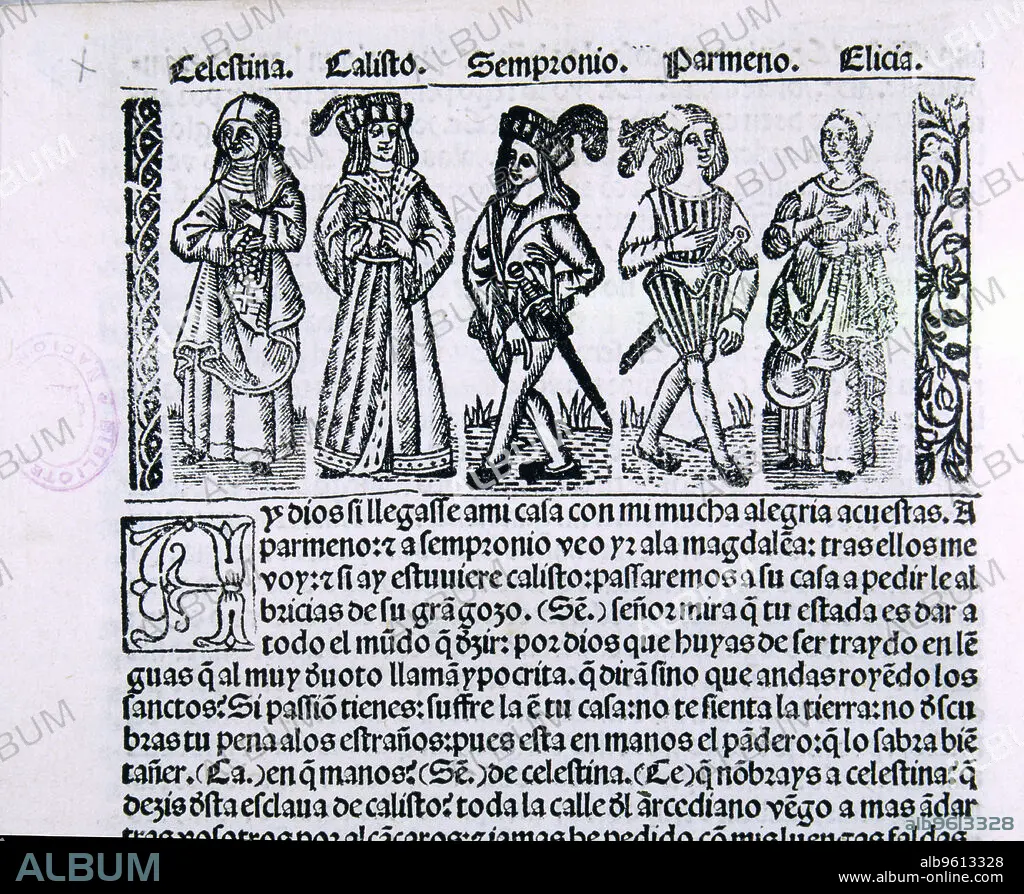 Celestina. Calisto. Sempronio. Parmeno. Elicia.
Ay dios si llegasse a mi casa con mi mucha alegria acuestas. A
parmeno: ⁊ a sempronio veo yr ala magdalẽa: tras ellos me
voy: ⁊ si ay estuuiere calisto: passaremos a su casa a pedir le al
bricias de su grã gozo. (Sẽ.) señor mira q̃ tu estada es dar a
todo el mũdo q̃ dezir: por dios que huyas de ser traydo en lẽ
guas q̃ al muy deuoto llamã ypocrita. q̃ dirã sino que andas royẽdo los
sanctos? Si passiõ tienes: suffre la ẽ tu casa: no te sienta la tierra: no descu
bras tu pena alos estraños: pues esta en manos el pãdero: q̃ lo sabra biẽ
tañer. (Ca.) en q̃ manos? (Sẽ.) de celestina. (Ce) q̃ nõbrays a celestina? q̃
dezis desta esclaua de calisto? toda la calle del arcediano vẽgo a mas ãdar
tras vosotros por alcãçaros: ⁊ jamas he podido cõ mis luengas faldas.
ALBUM
alb9613328
ALBUM
alb9613328
www.album-online.com